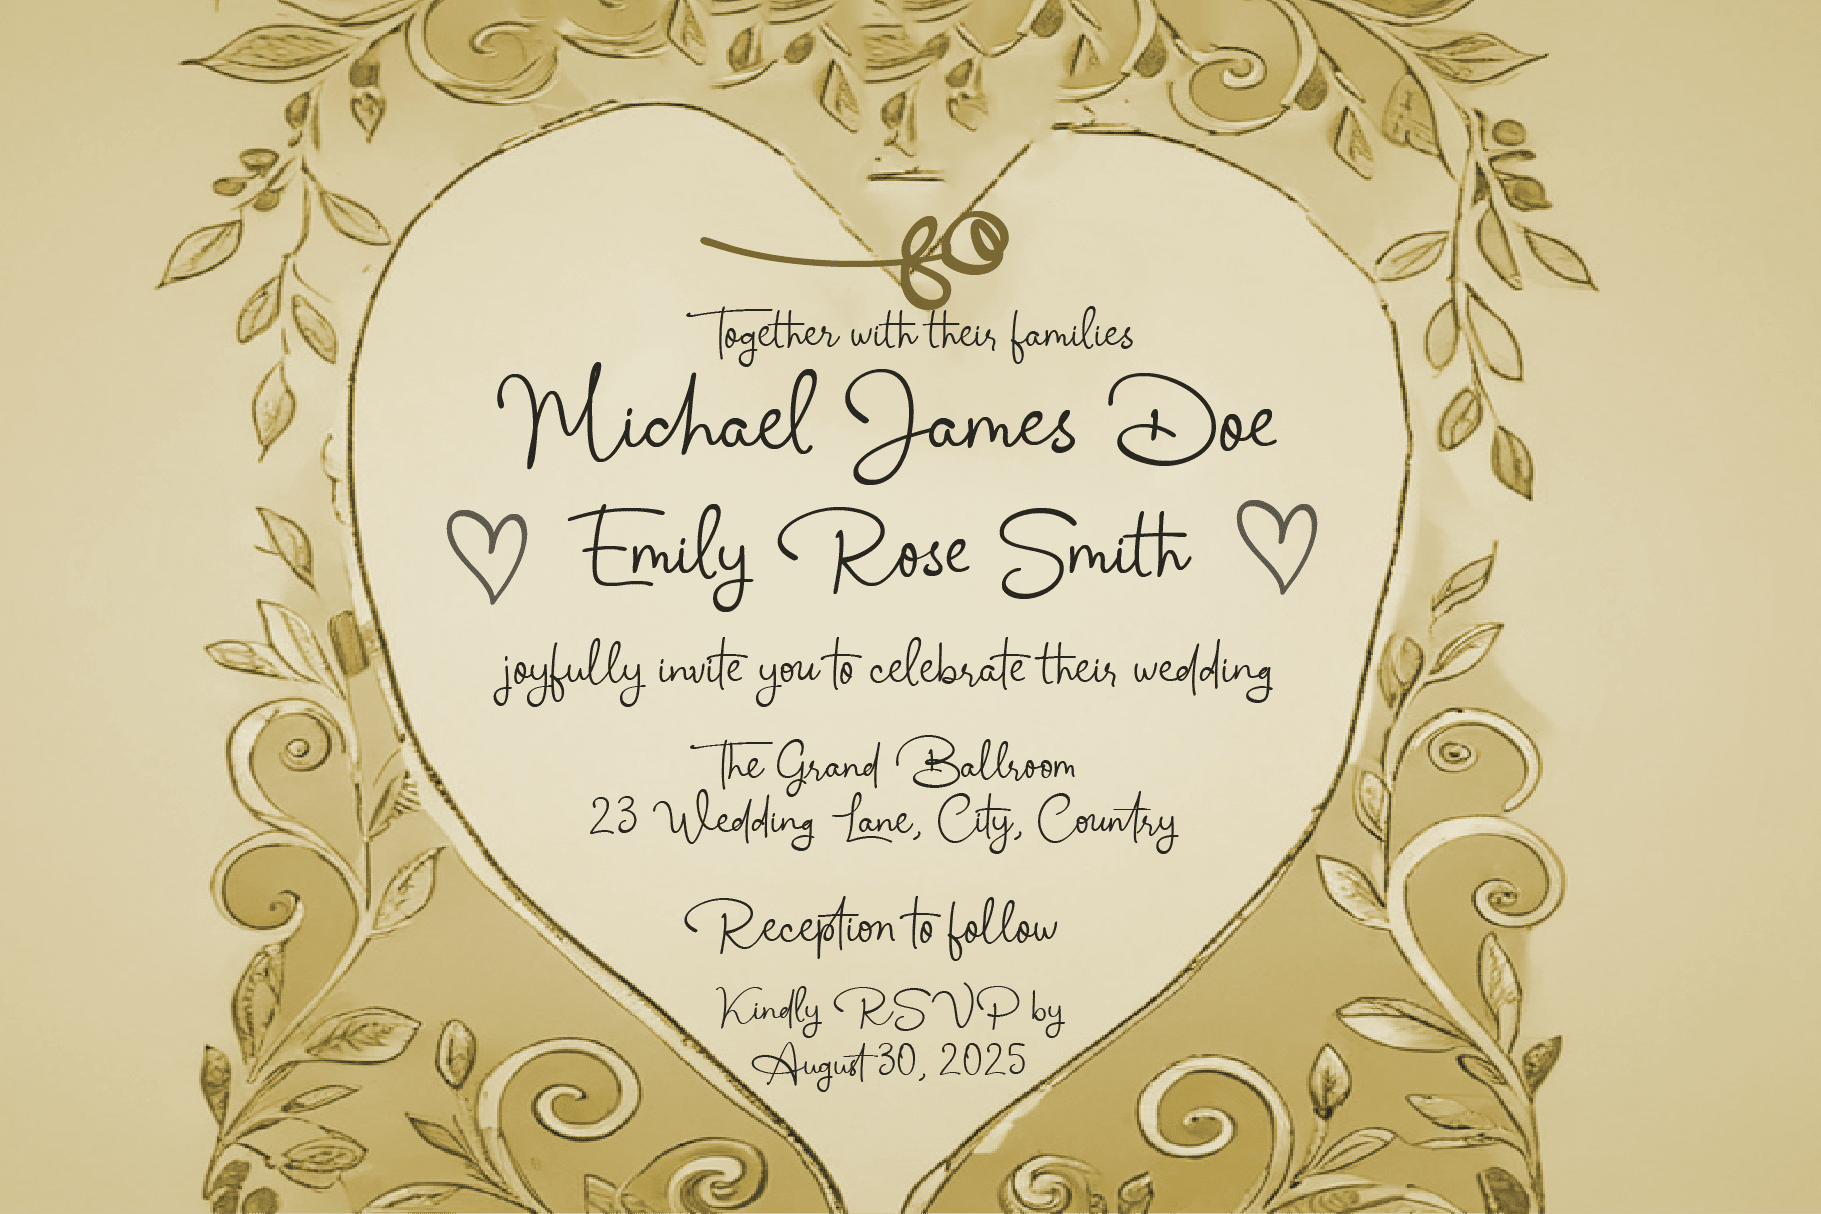 Together with their families
Michael James Doe
Emily Rose Smith
joyfully invite you to celebrate their wedding
The Grand Ballroom
23 Wedding Lane, City, Country
Reception to follow
Kindly RSVP by
August 30, 2025